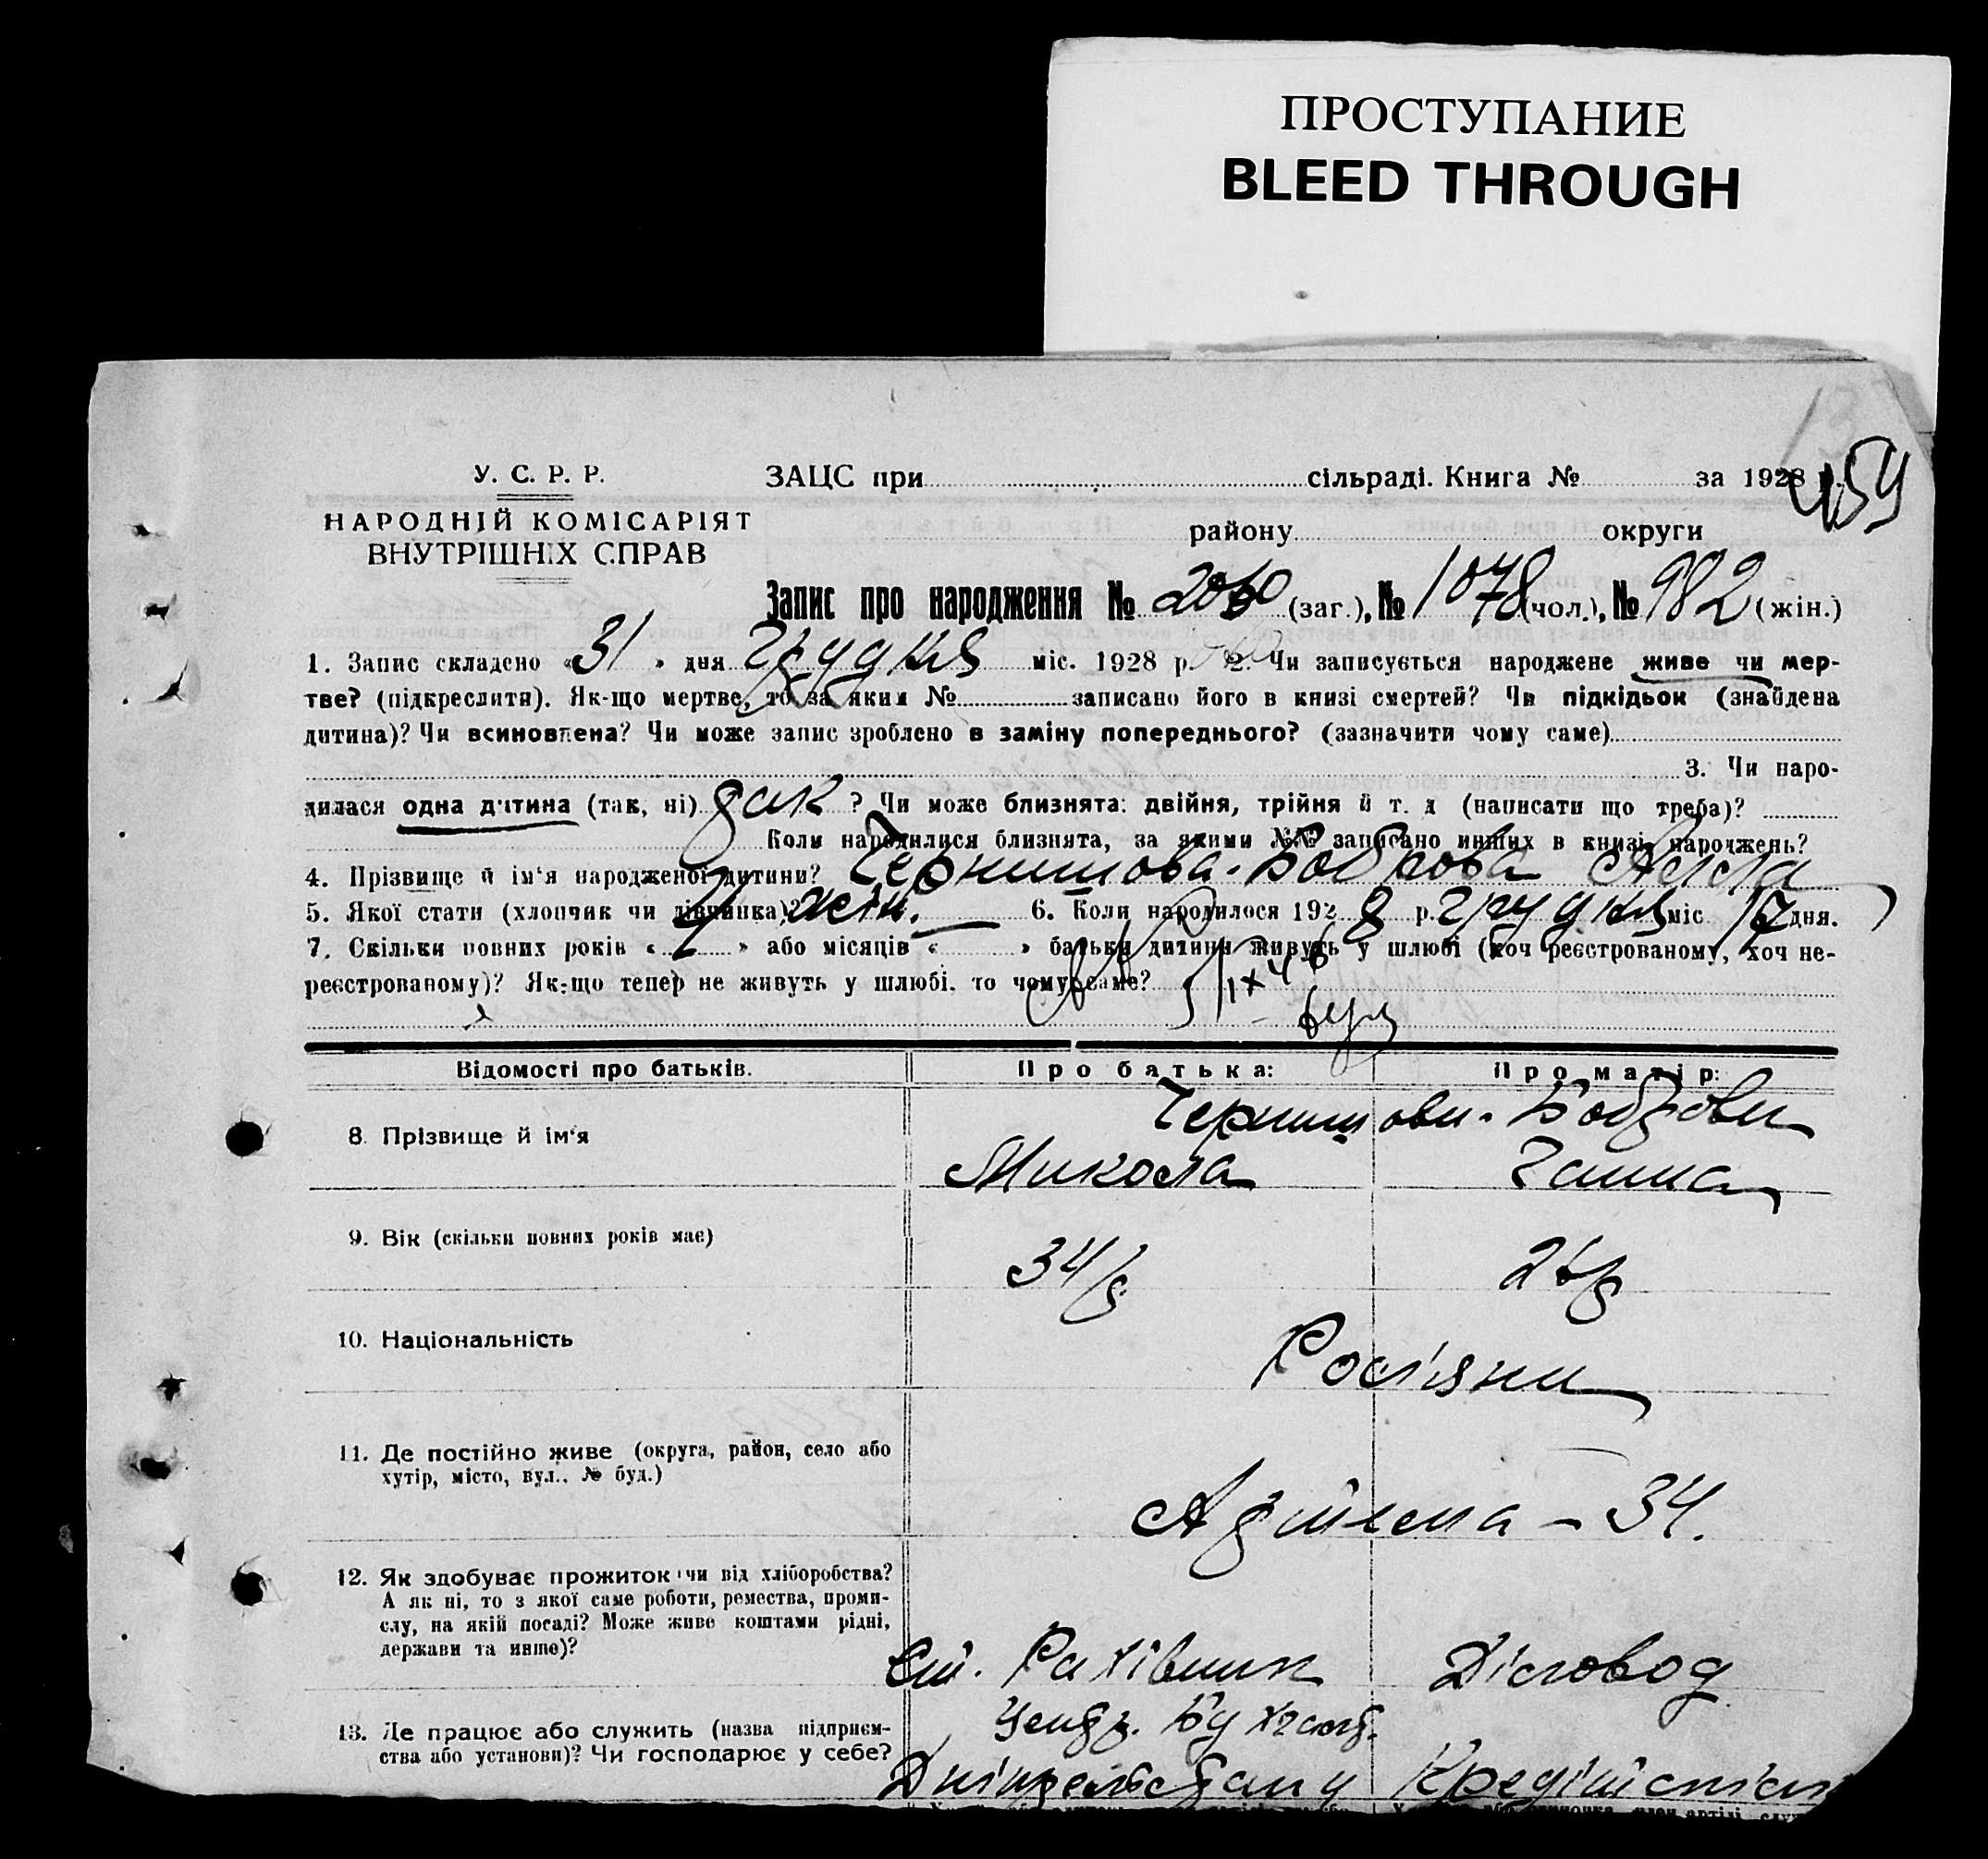 ПРОСТУПАНИЕ
BLEED THROUGH
459
У. С. Р. Р.
НАРОДНІЙ КОМІСАРІЯТ
ВНУТРІШНІХ СПРАВ
ЗАЦС при сільраді. Книга № за 1928 р.
району округи
Запис про народження № 2060 (заг.), № 1078 (чол.), № 982 (жін.)
1. Запис складено «31» дня грудня міс. 1928 р. 2. Чи записується народжене живе чи мер-
тве? (підкреслити). Як-що мертве, то за яким № записано його в книзі смертей? Чи підкідьок (знайдена
дитина)? Чи всиновлена? Чи може запис зроблено в заміну попереднього? (зазначити чому саме)
3. Чи наро-
дилася одна дитина (так, ні) так ? Чи може близнята: двійня, трійня й т. д (написати що треба)?
Коли народилися близнята, за якими №№ записано инших в книзі народжень?
4. Прізвище й ім'я народженої дитини? Чернишова-Боброва Алла
5. Якої стати (хлопчик чи дівчинка)? жін. 6. Коли народилося 1928 р. грудня міс 17 дня.
7. Скільки повних років « » або місяців « » батьки дитини живуть у шлюбі (хоч реєстрованому, хоч не-
реєстрованому)? Як-що тепер не живуть у шлюбі, то чому саме?
Відомості про батьків. Про батька: Про матір:
Чернишови-Боброви
8. Прізвище й ім'я Микола Ганна
9. Вік (скільки повних років має) 34 р 26 р
10. Національність Росіяни
11. Де постійно живе (округа, район, село або
хутір, місто, вул., № буд.)
34.
12. Як здобуває прожиток чи від хліборобства?
А як ні, то з якої саме роботи, ремества, проми-
слу, на якій посаді? Може живе коштами рідні,
держави та инше)?
Ст. Рахівник Діловод
13. Де працює або служить (назва підприєм-
ства або установи)? Чи господарює у себе?
Центр. Бухгалт.